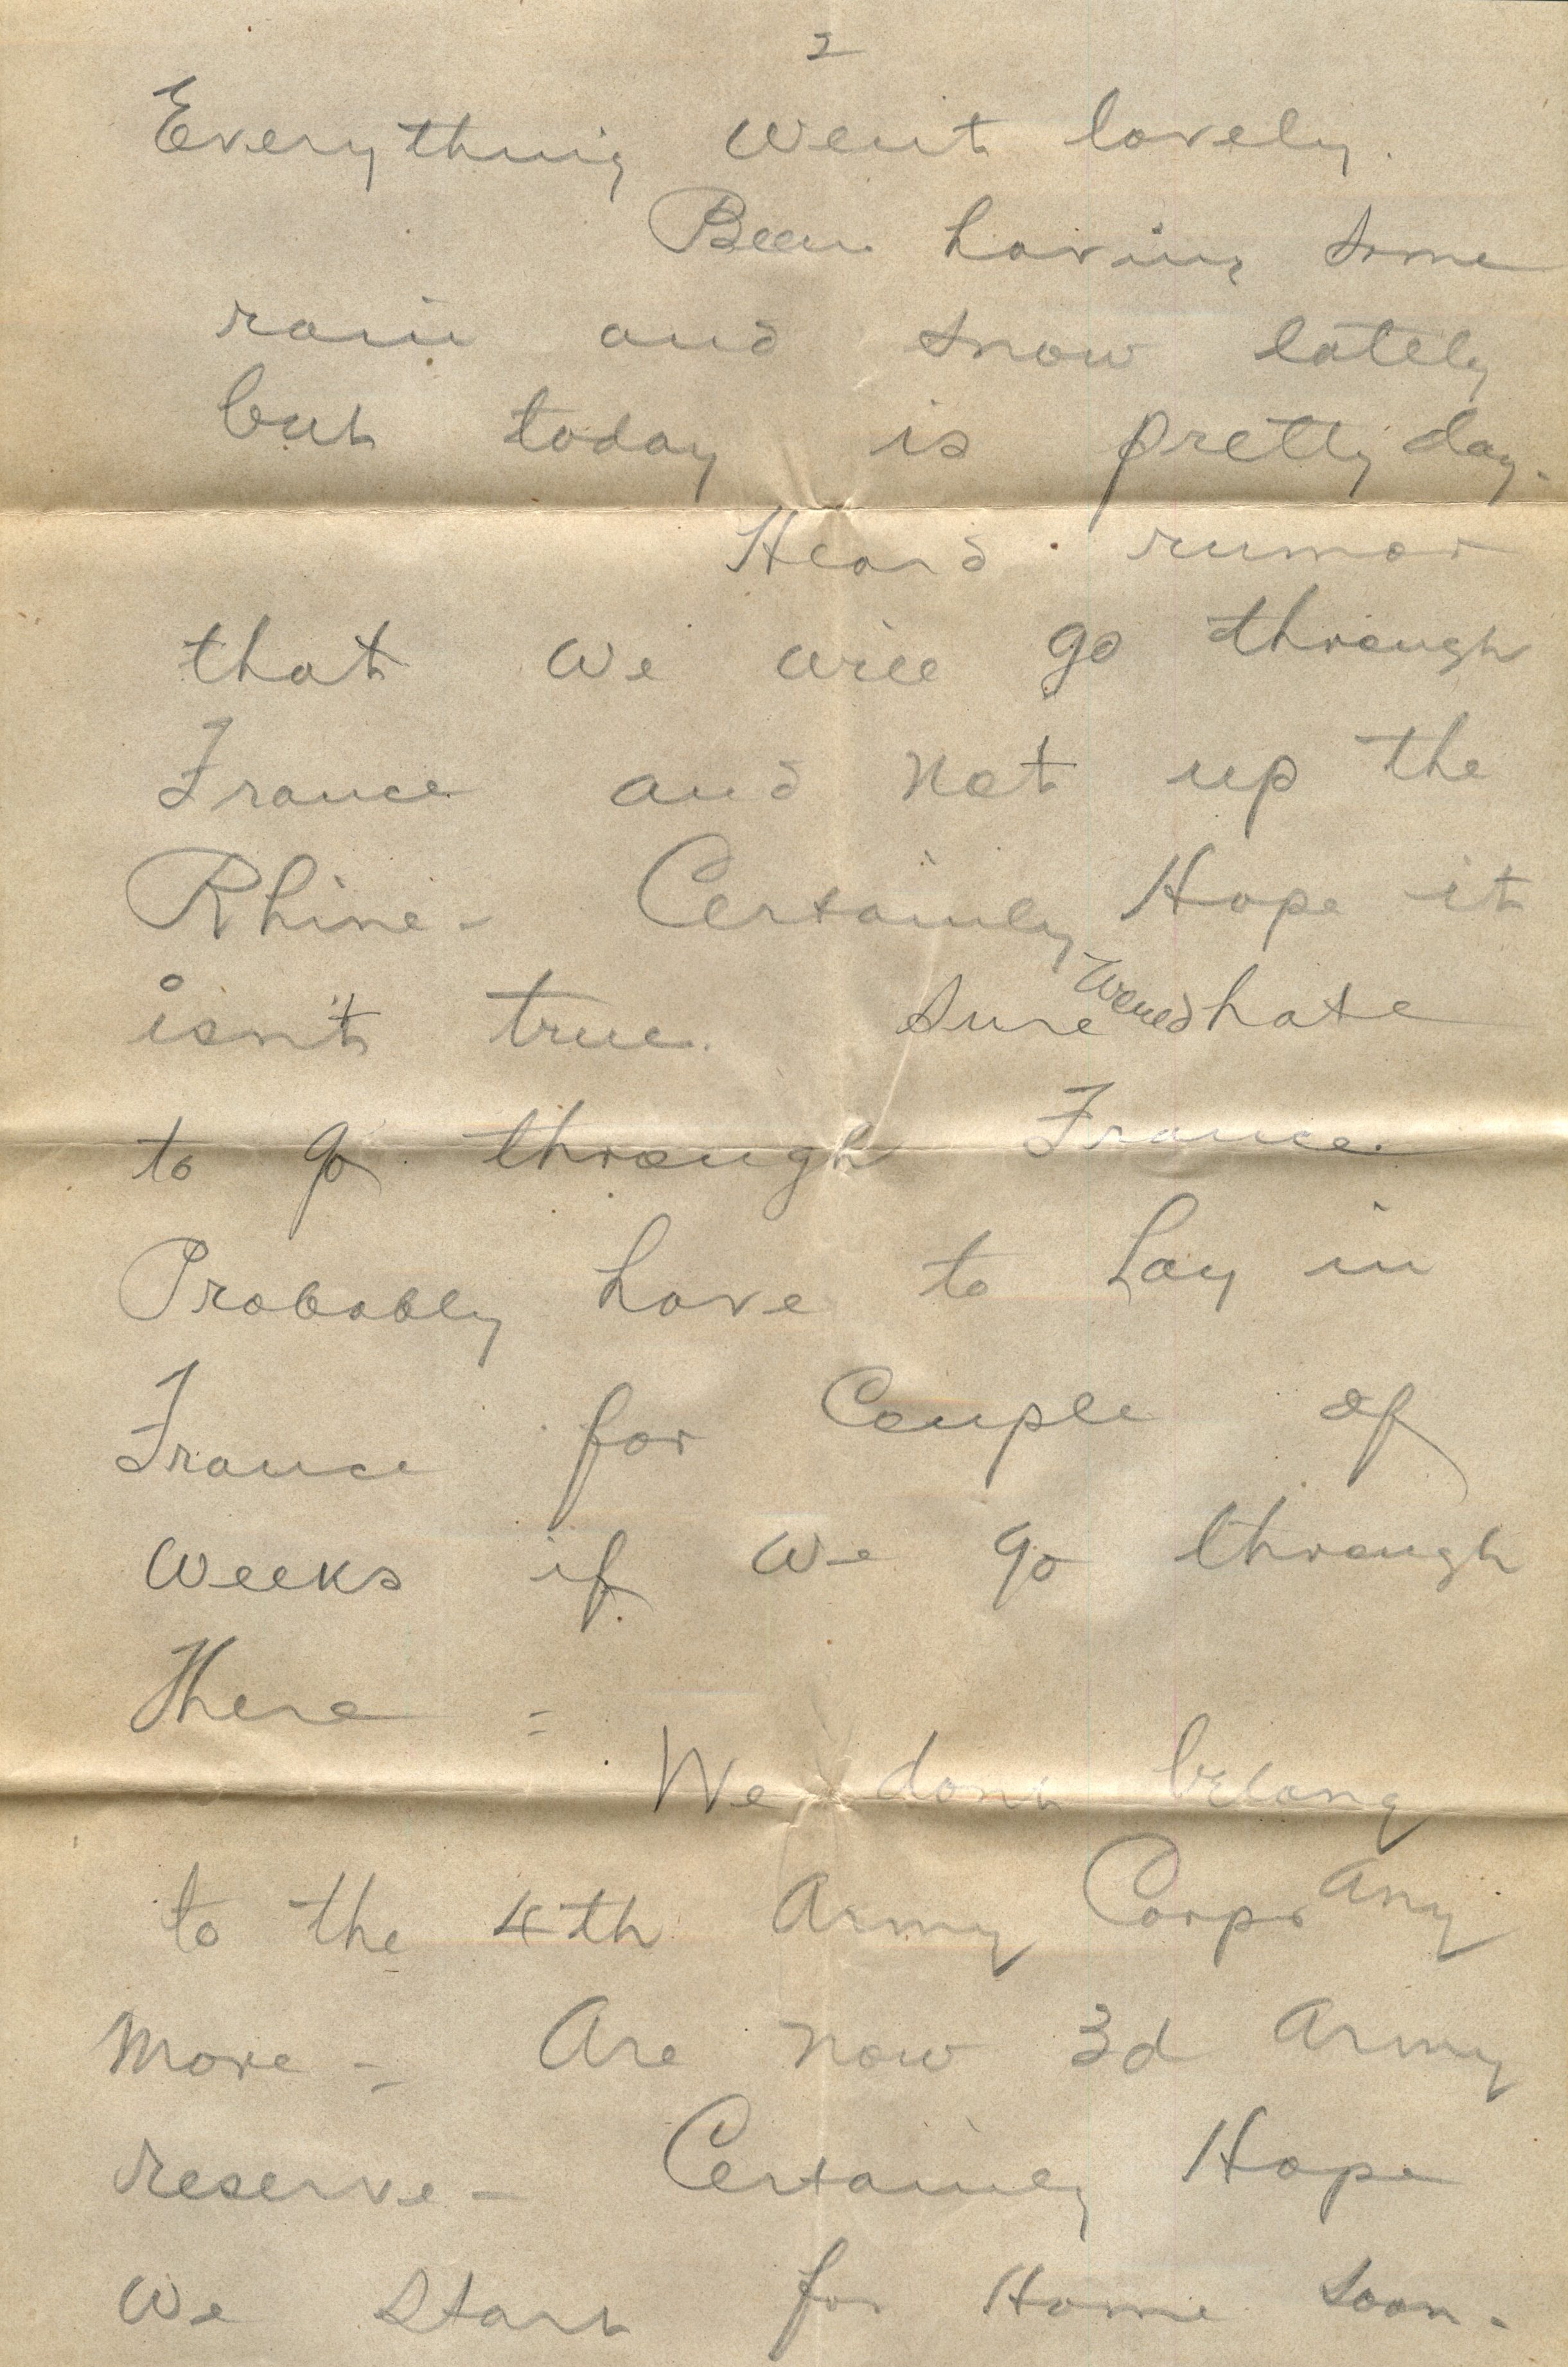 2
Everything went lovely.
Been having some
rain and snow lately
but today is pretty day.
Heard rumor
that we will go through
France and not up the
Rhine - Certainly Hope it
isn't true. Sure would hate
to go through France.
Probably have to lay in
France for Couple of
weeks if we go through
There =
We don't belong
to the 4th Army Corps any
more - Are now 3d Army
reserve - Certainly Hope
we start for Home soon -